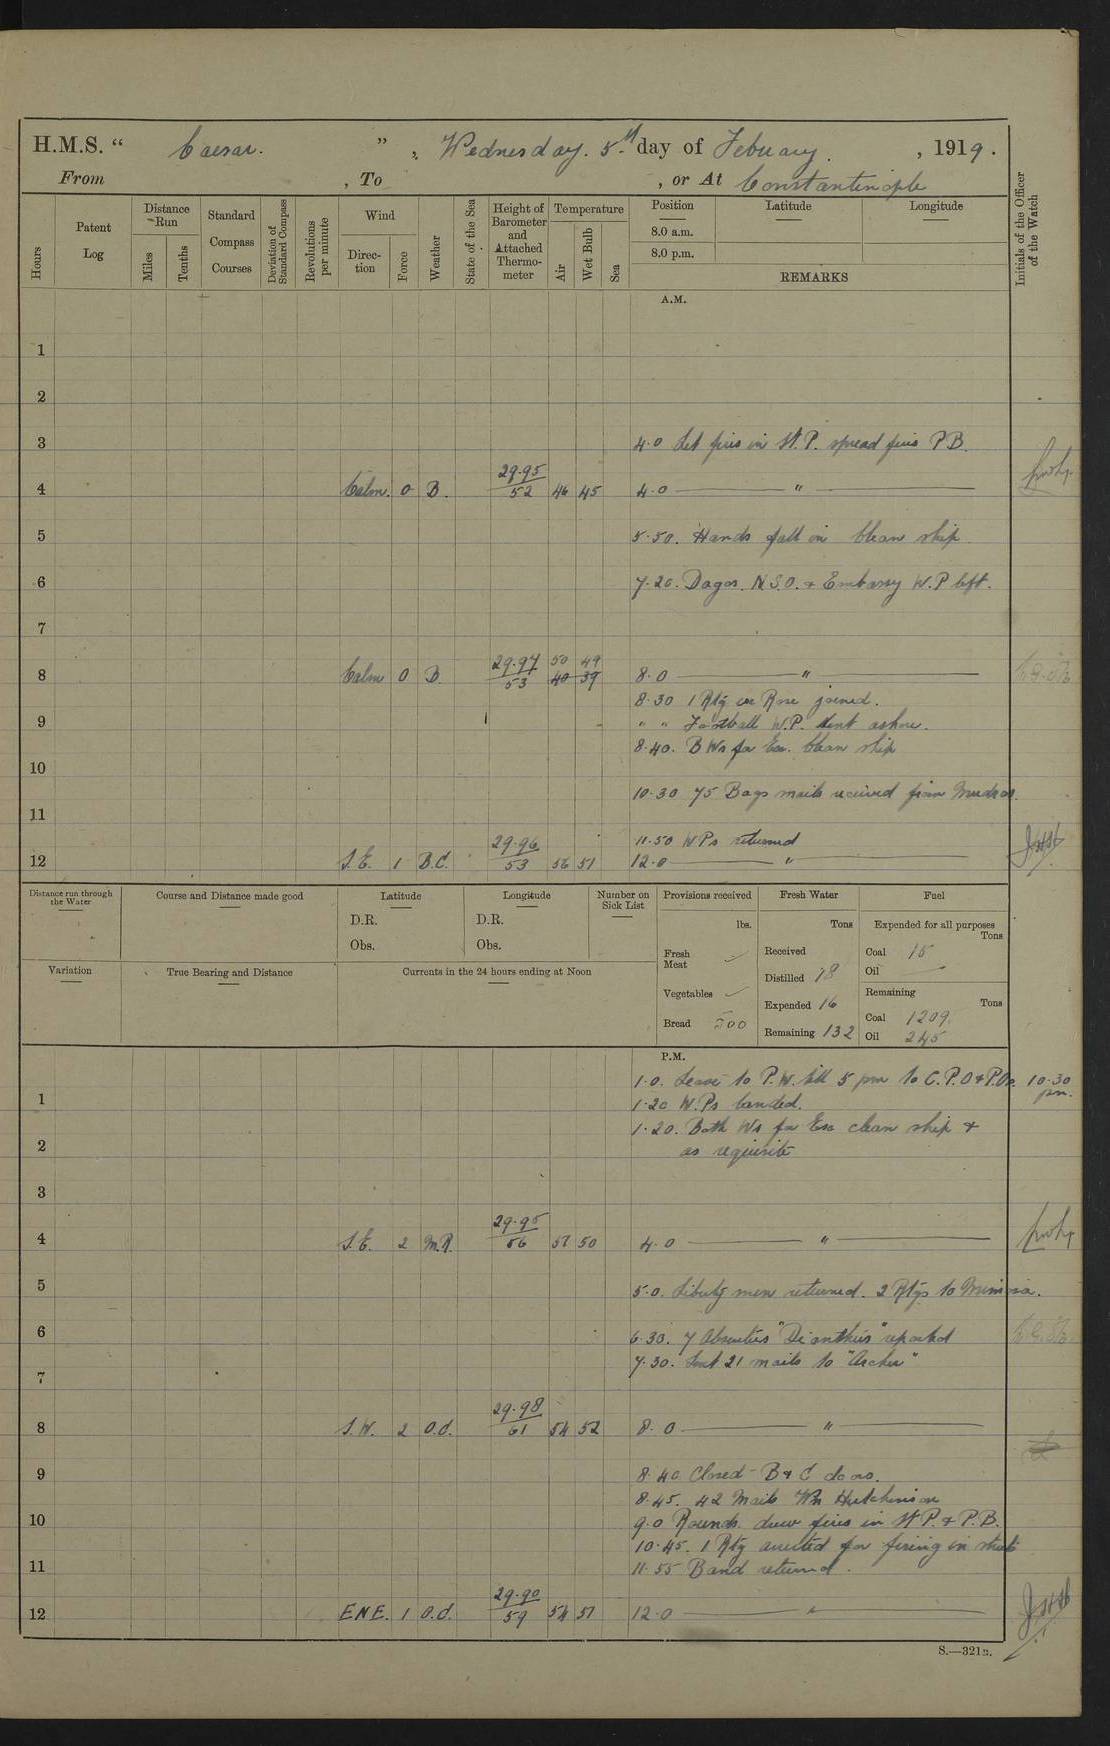 H.M.S. " Caesar. " , Wednesday. 5th day of Febuary. , 1919.
From , To , or At Constantinople
Hours
Patent Log
Distance Run
Miles
Tenths
Standard Compass Courses
Deviation of Standard Compass
Revolutions per minute
Wind
Direction
Force
Weather
State of the Sea
Height of Barometer and Attached Thermometer
Temperature
Air
Wet Bulb
Sea
Position
8.0 a.m.
8.0 p.m.
Latitude
Longitude
REMARKS
Initials of the Officer of the Watch
A.M.
1
2
3 4.0 Let fires in St. P. spread fires P B.
4 Calm. 0 B. 29.95/52 46 45 4.0 "
5 5.50. Hands fall in Clean ship
6 7.20. Dagos. N.S.O. & Embassy W.P left.
7
8 Calm 0 B. 29.97/53 50 49 40 39 8.0 "
8.30 1 Rtg ex Rose joined.
9 " " Football W.P. sent ashore.
8.40. B Ws for Exc. Clean ship
10
10.30 75 Bags mails received from Mudros.
11
11.50 W Ps returned
12 S.E. 1 B.C. 29.96/53 56 51 12.0 "
Distance run through the Water
Course and Distance made good
Latitude
D.R.
Obs.
Longitude
D.R.
Obs.
Number on Sick List
Provisions received
lbs.
Fresh Meat
Vegetables
Bread 500
Fresh Water
Tons
Received
Distilled 18
Expended 16
Remaining 132
Fuel
Expended for all purposes
Tons
Coal 15
Oil —
Remaining
Tons
Coal 1209.
Oil 245
Variation
True Bearing and Distance
Currents in the 24 hours ending at Noon
P.M.
1.0. Leave to P.W. till 5 pm to C.P.O & P.Os. 10.30 pm.
1 1.20 W.Ps landed.
1.20. Both Ws for Exc clean ship &
2 as requisite
3
4 S.E. 2 M.R. 29.95/56 51 50 4.0 "
5 5.0. Liberty men returned. 2 Rtgs to Mimosa.
6 6.30. 7 Absentees "Dianthus" reported
7.30. Sent 21 mails to "Archer"
7
8 S.W. 2 O.d. 29.98/61 54 52 8.0 "
9 8.40 Closed B & C doors.
8.45. 42 Mails Wm Hutchinson
10 9.0 Rounds. drew fires in St P. & P.B.
10.45. 1 Rtg arrested for firing in street
11 11.55 Band returned.
12 E N E. 1 O.d. 29.90/59 54 51 12.0 "
S.—321B.